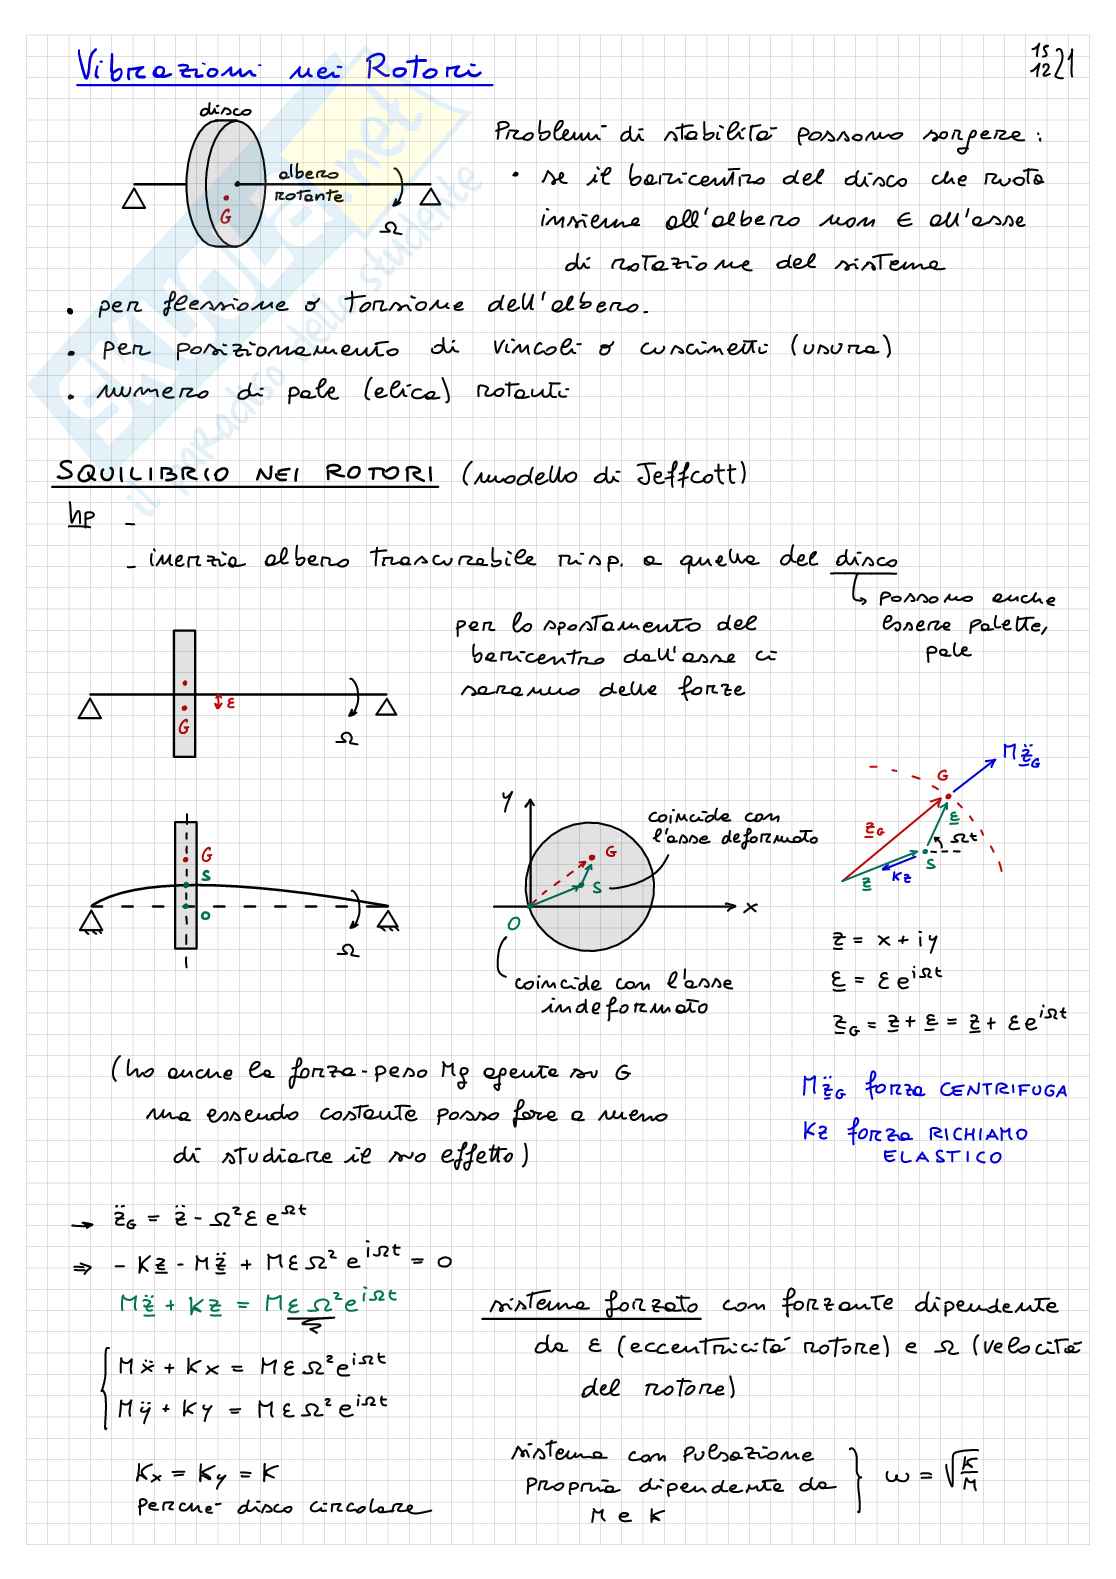 Vibrazioni nei Rotori
15
12 21
disco
albero
rotante
G
Ω
Problemi di stabilità possono sorgere:
• se il baricentro del disco che ruota
insieme all'albero non ∈ all'asse
di rotazione del sistema
• per flessione o torsione dell'albero.
• per posizionamento di vincoli o cuscinetti (usura)
• numero di pale (elica) rotanti
SQUILIBRIO NEI ROTORI (modello di Jeffcott)
hp -
- inerzia albero trascurabile risp. a quella del disco
↳ possono anche
essere palette,
pale
per lo spostamento del
baricentro dall'asse ci
saranno delle forze
ε
G
Ω
G
S
O
Ω
y
x
O
G
S
coincide con
l'asse deformato
coincide con l'asse
indeformato
G
M z̈_G
z_G
ε
Ωt
S
Kz
z
z = x + iy
ε = ε e^{iΩt}
z_G = z + ε = z + ε e^{iΩt}
(ho anche la forza-peso Mg agente su G
ma essendo costante posso fare a meno
di studiare il suo effetto)
M z̈_G forza CENTRIFUGA
Kz forza RICHIAMO
ELASTICO
→ z̈_G = z̈ - Ω²ε e^{Ωt}
⇒ - Kz - M z̈ + MεΩ² e^{iΩt} = 0
M z̈ + Kz = MεΩ² e^{iΩt}
sistema forzato con forzante dipendente
da ε (eccentricità rotore) e Ω (velocità
del rotore)
M ẍ + Kx = MεΩ² e^{iΩt}
M ÿ + Ky = MεΩ² e^{iΩt}
Kx = Ky = K
perché disco circolare
sistema con pulsazione
propria dipendente da
M e K
} ω = √(K/M)
SKUOLA.net
il paradiso dello studente